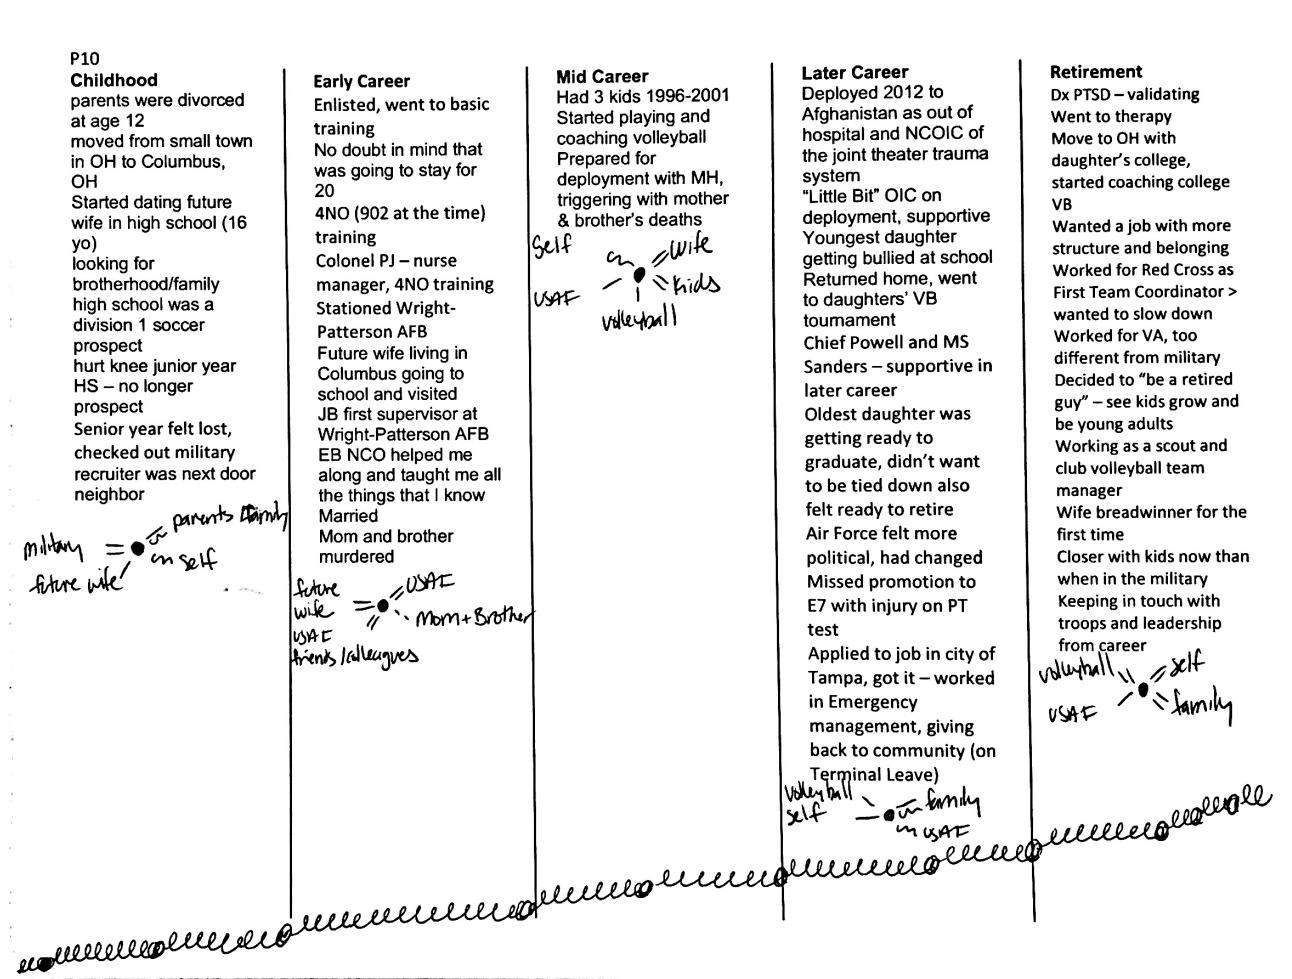 P10
Childhood
parents were divorced
at age 12
moved from small town
in OH to Columbus,
OH
Started dating future
wife in high school (16
yo)
looking for
brotherhood/family
high school was a
division 1 soccer
prospect
hurt knee junior year
HS – no longer
prospect
Senior year felt lost,
checked out military
recruiter was next door
neighbor
parents & family
military
self
future wife
Early Career
Enlisted, went to basic
training
No doubt in mind that
was going to stay for
20
4NO (902 at the time)
training
Colonel PJ – nurse
manager, 4NO training
Stationed Wright-
Patterson AFB
Future wife living in
Columbus going to
school and visited
JB first supervisor at
Wright-Patterson AFB
EB NCO helped me
along and taught me all
the things that I know
Married
Mom and brother
murdered
future
wife
USAF
Mom + Brother
USAF
friends/colleagues
Mid Career
Had 3 kids 1996-2001
Started playing and
coaching volleyball
Prepared for
deployment with MH,
triggering with mother
& brother's deaths
Self
wife
USAF
kids
volleyball
Later Career
Deployed 2012 to
Afghanistan as out of
hospital and NCOIC of
the joint theater trauma
system
“Little Bit” OIC on
deployment, supportive
Youngest daughter
getting bullied at school
Returned home, went
to daughters’ VB
tournament
Chief Powell and MS
Sanders – supportive in
later career
Oldest daughter was
getting ready to
graduate, didn’t want
to be tied down also
felt ready to retire
Air Force felt more
political, had changed
Missed promotion to
E7 with injury on PT
test
Applied to job in city of
Tampa, got it – worked
in Emergency
management, giving
back to community (on
Terminal Leave)
volleyball
self
family
USAF
Retirement
Dx PTSD – validating
Went to therapy
Move to OH with
daughter’s college,
started coaching college
VB
Wanted a job with more
structure and belonging
Worked for Red Cross as
First Team Coordinator >
wanted to slow down
Worked for VA, too
different from military
Decided to “be a retired
guy” – see kids grow and
be young adults
Working as a scout and
club volleyball team
manager
Wife breadwinner for the
first time
Closer with kids now than
when in the military
Keeping in touch with
troops and leadership
from career
volleyball
self
USAF
family